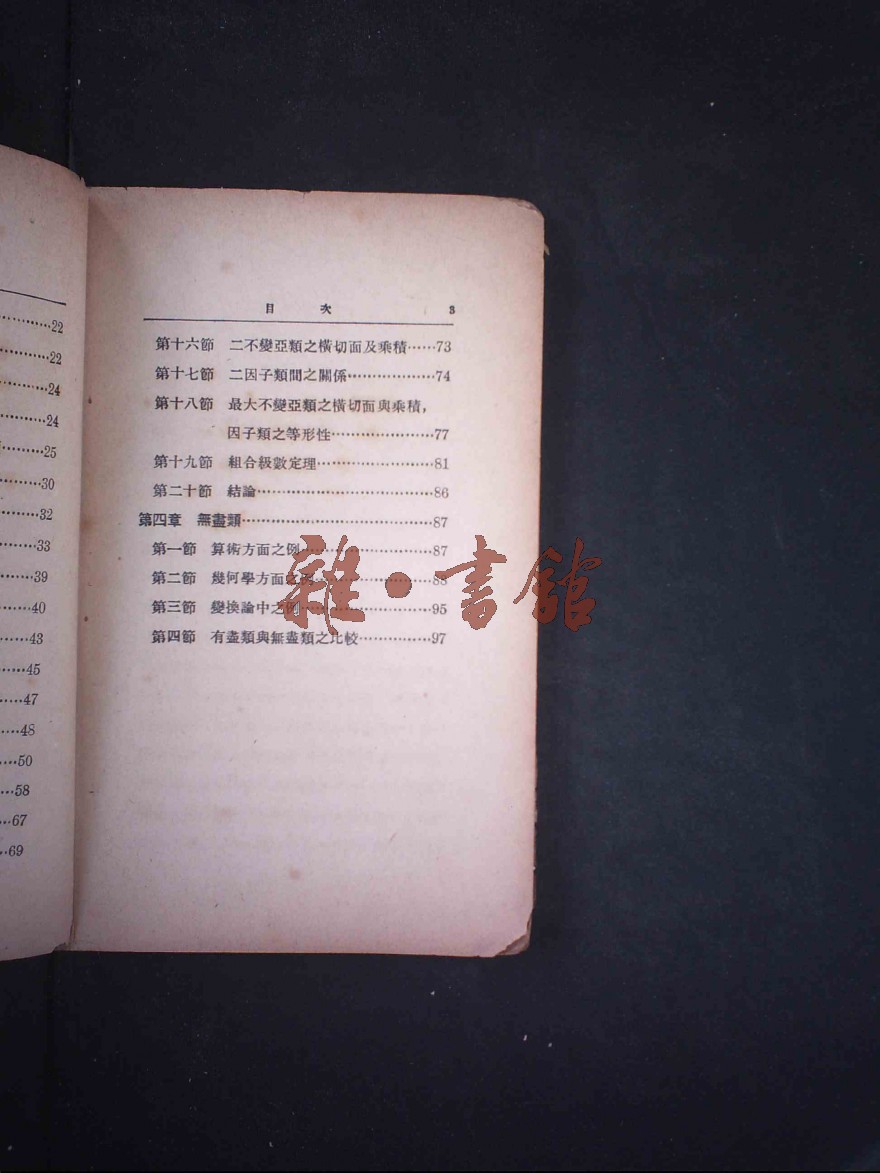 ……22
……22
……24
……24
……25
……30
……32
……33
……39
……40
……43
……45
……47
……48
……50
……58
……67
……69
目 次 3
第十六節 二不變亞類之橫切面及乘積……73
第十七節 二因子類間之關係………………74
第十八節 最大不變亞類之橫切面與乘積,
因子類之等形性………………77
第十九節 組合級數定理………………81
第二十節 結論………………86
第四章 無盡類………………87
第一節 算術方面之例………………87
第二節 幾何學方面之例………………88
第三節 變換論中之例………………95
第四節 有盡類與無盡類之比較……………97
雜·書館